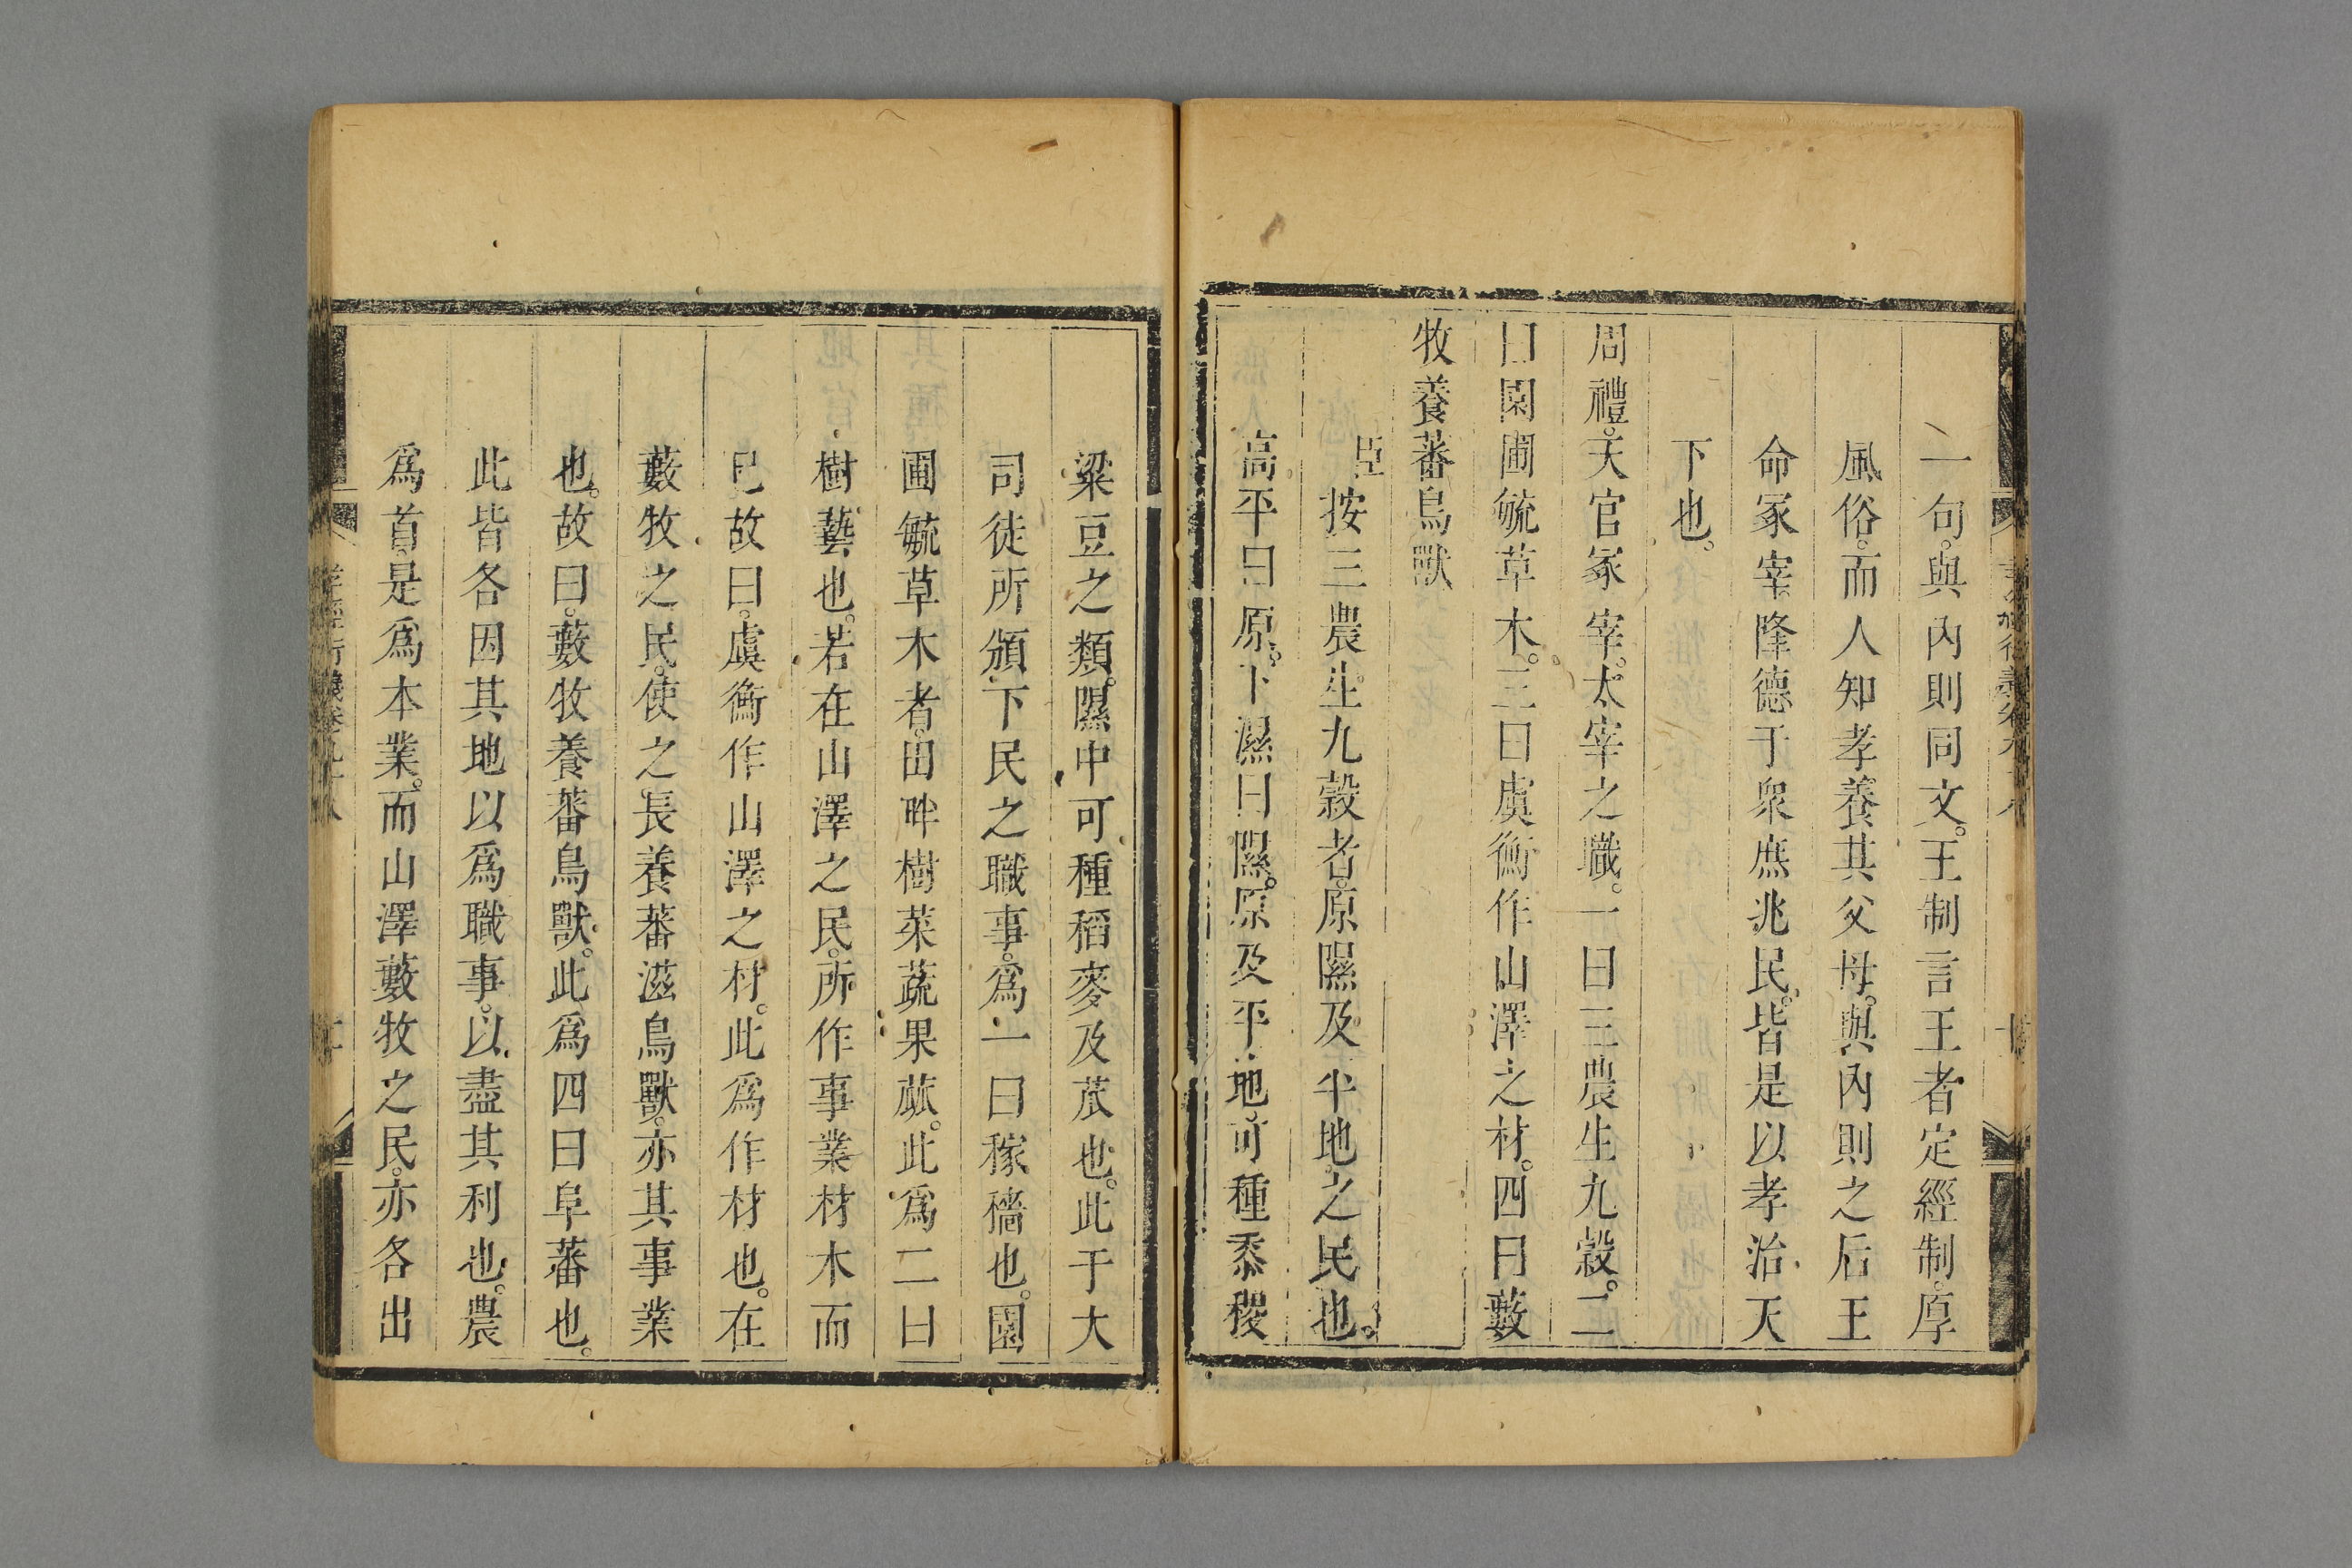 一句。與內則同文。王制言王者定經制。厚
風俗。而人知孝養其父母。與內則之后王
命冢宰。隆德于衆庶兆民。皆是以孝治天
下也。
周禮。天官冢宰。太宰之職。一曰三農生九穀。二
曰園圃毓草木。三曰虞衡作山澤之材。四曰藪
牧養蕃鳥獸
臣按三農生九穀者。原隰及平地之民也。
高平曰原。下濕曰隰。原及平地可種黍稷
粱豆之類。隰中可種稻麥及苽也。此于大
司徒所頒下民之職事。爲一曰稼穡也。園
圃毓草木者。田畔樹菜蔬果蓏。此爲二曰
樹藝也。若在山澤之民。所作事業材木而
已故曰。虞衡作山澤之材。此爲作材也。在
藪牧之民。使之長養蕃滋鳥獸。亦其事業
也。故曰。藪牧養蕃鳥獸。此爲四曰阜蕃也。
此皆各因其地以爲職事。以盡其利也。農
爲首。是爲本業。而山澤藪牧之民。亦各出